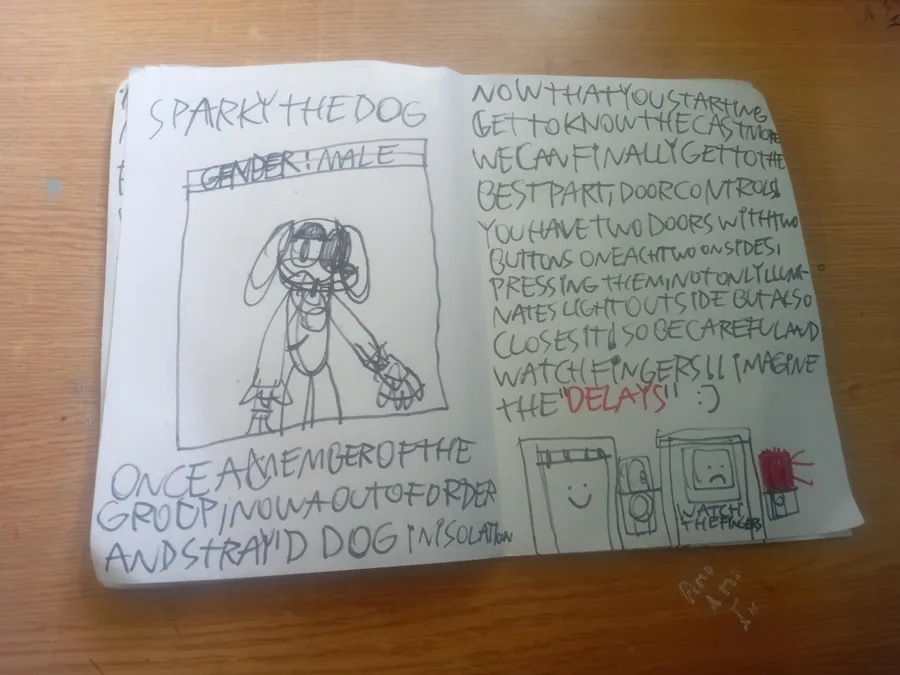 SPARKY THE DOG
GENDER: MALE
ONCE A MEMBER OF THE
GROUP, NOW A OUT OF ORDER
AND STRAY'D DOG IN ISOLATION
NOW THAT YOU STARTING
GET TO KNOW THE CAST MORE
WE CAN FINALLY GET TO THE
BEST PART, DOOR CONTROLS!
YOU HAVE TWO DOORS WITH TWO
BUTTONS ON EACH TWO ON SIDES,
PRESSING THEM, NOT ONLY ILLUMI-
NATES LIGHT OUTSIDE BUT ALSO
CLOSES IT! SO BE CAREFUL AND
WATCH FINGERS!! IMAGINE
THE "DELAYS" :)
WATCH
THE FINGERS